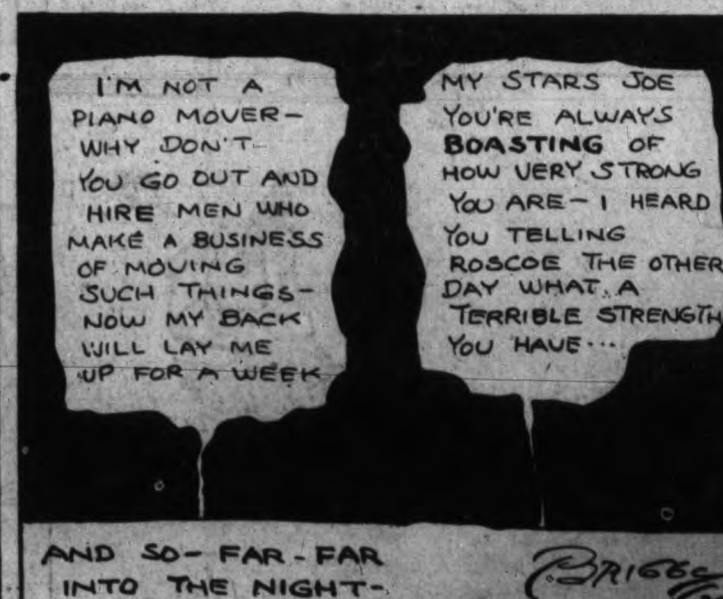 I'M NOT A
PIANO MOVER—
WHY DON'T
YOU GO OUT AND
HIRE MEN WHO
MAKE A BUSINESS
OF MOVING
SUCH THINGS—
NOW MY BACK
WILL LAY ME
UP FOR A WEEK
MY STARS JOE
YOU'RE ALWAYS
BOASTING OF
HOW VERY STRONG
YOU ARE— I HEARD
YOU TELLING
ROSCOE THE OTHER
DAY WHAT A
TERRIBLE STRENGTH
YOU HAVE...
AND SO— FAR-FAR
INTO THE NIGHT-
BRIGGS